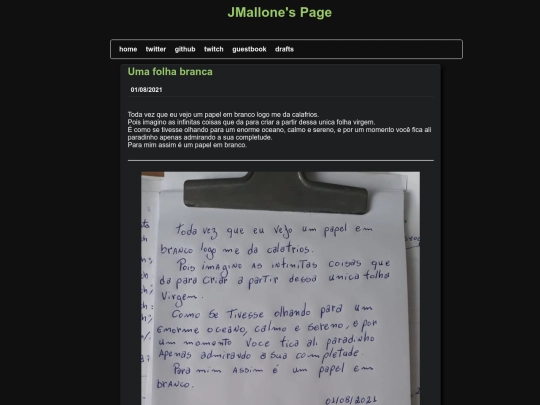 JMallone's Page
home twitter github twitch guestbook drafts
Uma folha branca
01/08/2021
Toda vez que eu vejo um papel em branco logo me da calafrios.
Pois imagino as infinitas coisas que da para criar a partir dessa unica folha virgem.
É como se tivesse olhando para um enorme oceano, calmo e sereno, e por um momento você fica ali
paradinho apenas admirando a sua completude.
Para mim assim é um papel em branco.
Toda vez que eu vejo um papel em
branco logo me da calafrios.
Pois imagino as infinitas coisas que
da para criar a partir dessa unica folha
Virgem.
Como se tivesse olhando para um
enorme oceano, calmo e sereno, e por
um momento voce fica ali paradinho
Apenas admirando a sua completude.
Para mim assim é um papel em
branco.
01/08/2021